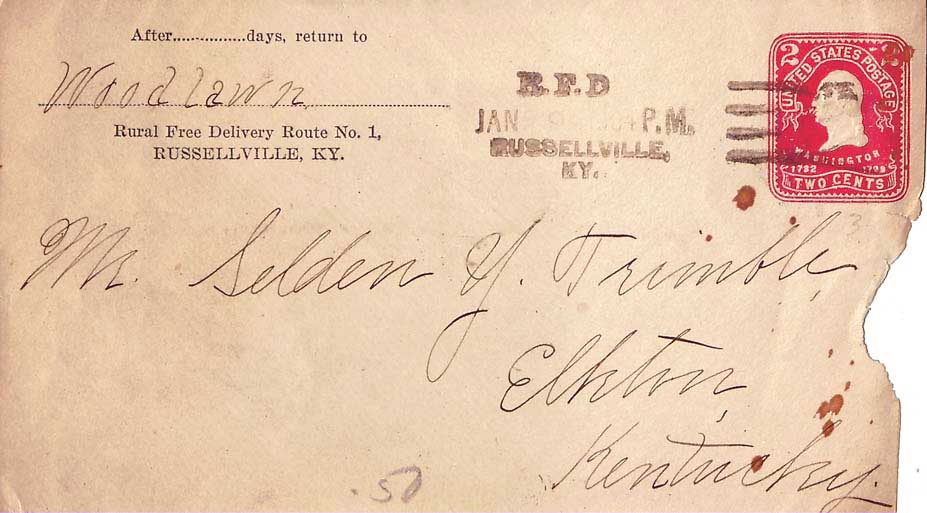 After...............days, return to
Woodlawn
Rural Free Delivery Route No. 1,
RUSSELLVILLE, KY.
R.F.D
JAN P.M.
RUSSELLVILLE,
KY.
2 2
UNITED STATES POSTAGE
WASHINGTON
1732 1799
TWO CENTS
Mr. Selden Y. Trimble,
Elkton,
Kentucky.
.50